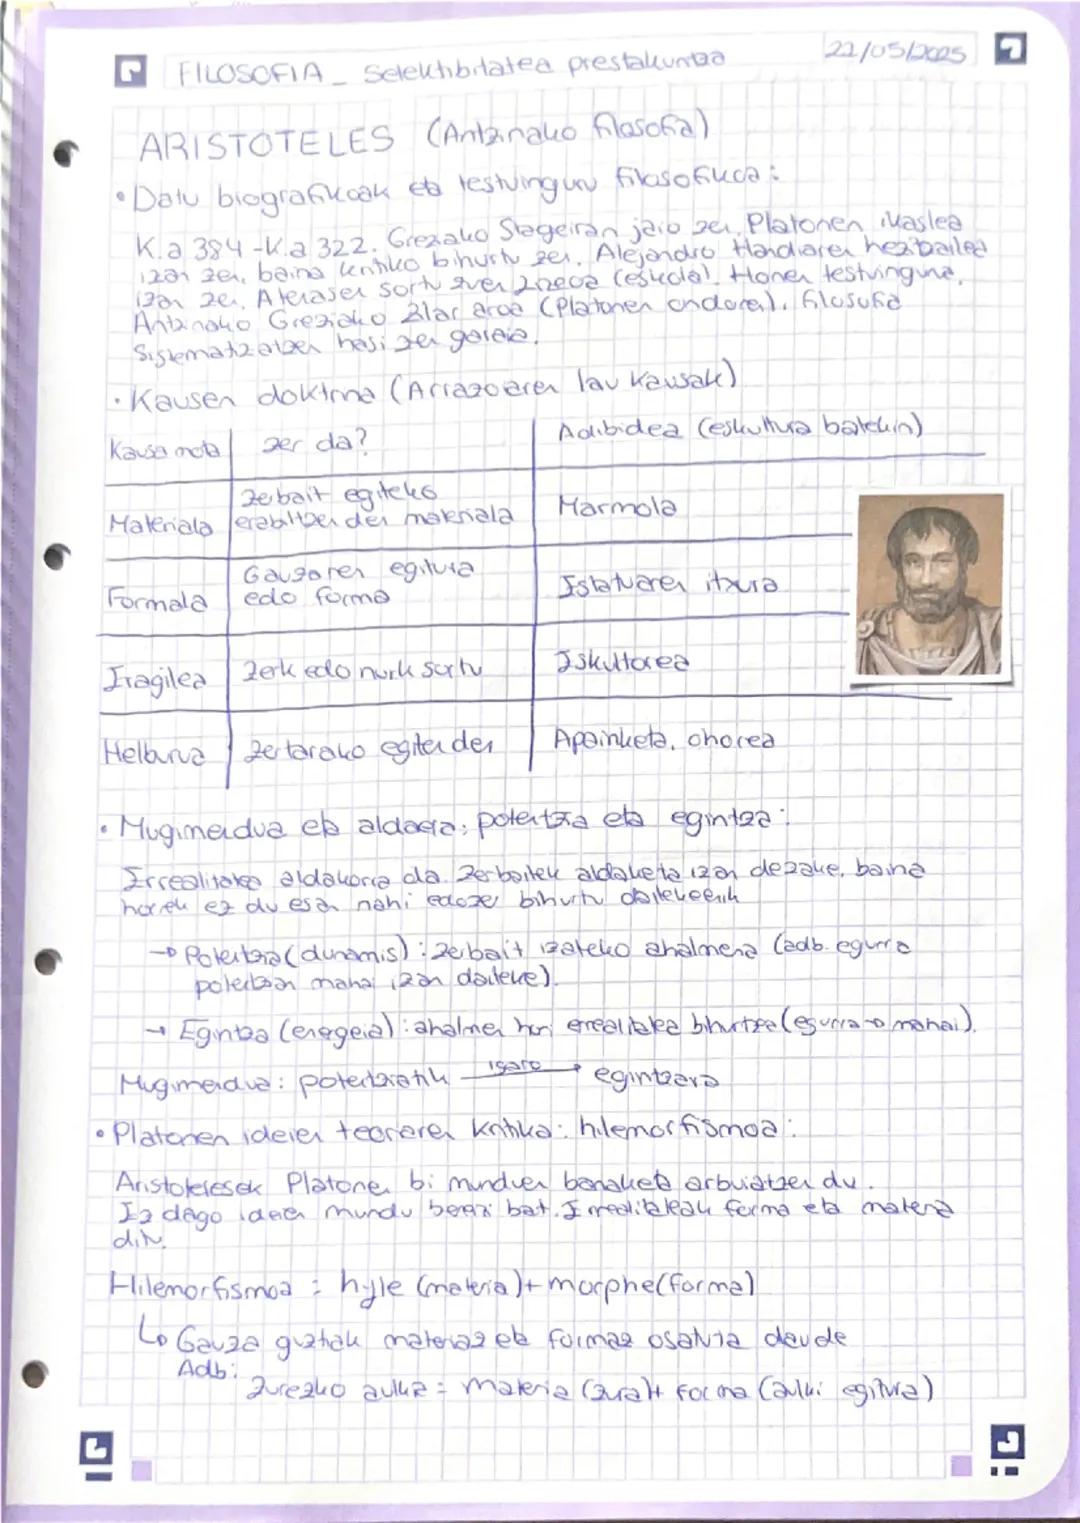 FILOSOFIA _ Selektibitatea prestakuntza
22/05/2025
ARISTOTELES (Antzinako filosofia)
• Datu biografikoak eta testuinguru filosofikoa:
K.a 384 - K.a 322. Greziako Stageiran jaio zen. Platonen ikaslea
izan zen, baina kritiko bihurtu zen. Alejandro Handiaren hezitzailea
izan zen. Atenasen sortu zuen Lizeoa (eskola). Honen testuingurua,
Antzinako Greziako Zilar aroa (Platonen ondoren). Filosofia
sistematizatzen hasi zen garaia.
• Kausen doktrina (Arrazoiaren lau kausak)
Kausa mota | zer da? | Adibidea (eskultura batekin)
Materiala | Zebait egiteko erabiltzen den materiala | Marmola
Formala | Gauzaren egitura edo forma | Istatuaren itxura
Eragilea | Zerk edo nork sortu | Iskultorea
Helburua | Zertarako egiten den | Apainketa, ohorea
• Mugimendua eta aldaera: potentzia eta egintza:
Errealitatea aldakorra da. Zerbaitek aldaketa izan dezake, baina
horrek ez du esan nahi edozer bihurtu daitekeenik
→ Potentzia (dunamis): zerbait izateko ahalmena (adb. egurra
potentzian mahai izan daiteke).
→ Egintza (energeia): ahalmen hori errealitatea bihurtzea (egurra → mahai).
Mugimendua: potentziatik igaro → egintzara
• Platonen ideien teoriaren kritika: hilemorfismoa:
Aristotelesek Platonen bi munduen banaketa arbuiatzen du.
Ez dago ideien mundu berezi bat. Errealitateak forma eta materia
ditu.
Hilemorfismoa = hyle (materia) + morphe (forma)
↳ Gauza guztiak materiaz eta formaz osatuta daude
Adb:
Zurezko aulkia = materia (zura) + forma (aulki egitura)